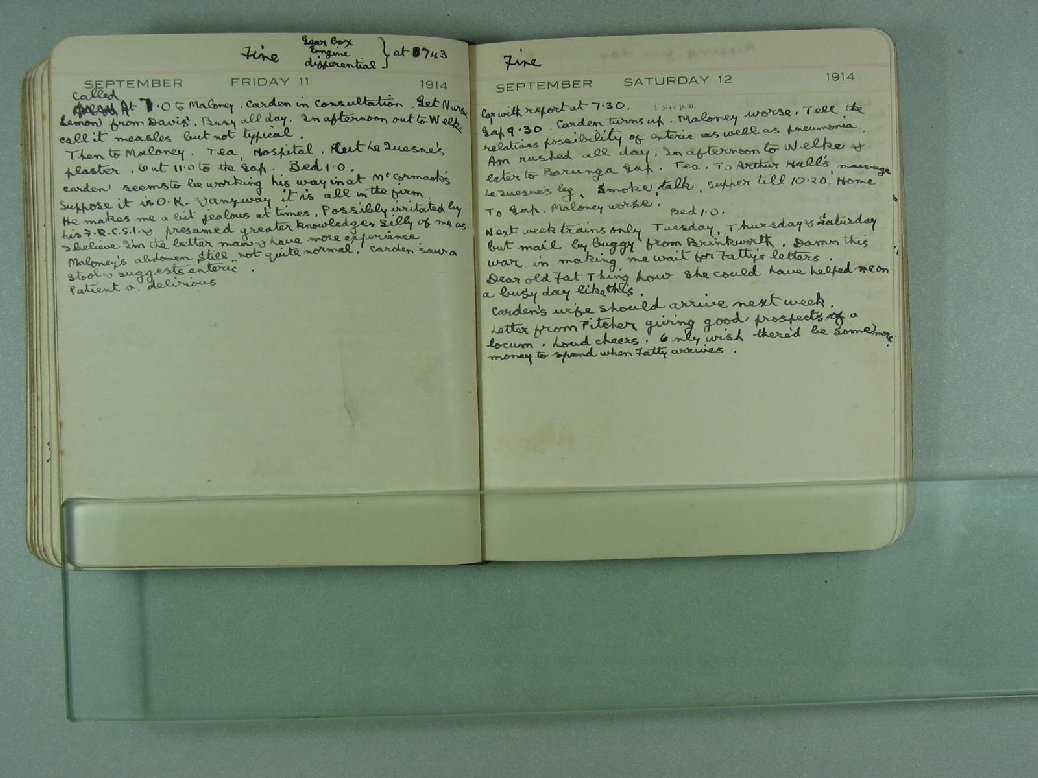 Fine Gear box
Engine } at 8743
differential
SEPTEMBER FRIDAY 11 1914
Called
At 7.0 to Maloney. Carden in consultation. Get Nurse
Lemon from Davis'. Busy all day. In afternoon out to Welke
call it measles but not typical.
Then to Maloney. Tea Hospital. Put Le Quesne's
plaster. Out 11.0 to the Gap. Bed 1.0.
Carden seems to be working his way in at McCormack's
Suppose it is O.K. & anyway it is all in the firm
He makes me a bit jealous at times. Possibly irritated by
his F.R.C.S.I. & presumed greater knowledge. Silly of me as
I believe I'm the better man & have more experience
Maloney's abdomen still not quite normal. Carden saw a
stool & suggests enteric.
Patient a. delirious
Fine
SEPTEMBER SATURDAY 12 1914
Car with report at 7.30.
Gap 9.30. Carden turns up. Maloney worse. Tell the
relatives possibility of enteric as well as pneumonia.
Am rushed all day. In afternoon to Welke &
later to Barunga Gap. Tea. To Arthur Hall's massage
Le Quesnes leg. Smoke, talk, supper till 10.20. Home
To Gap. Maloney worse. Bed 1.0.
Next week trains only Tuesday, Thursday & Saturday
but mail by buggy from Brinkworth. Damn this
war in making me wait for Fatty's letters.
Dear old Fat Thing how she could have helped me on
a busy day like this.
Carden's wife should arrive next week.
Letter from Pitcher giving good prospects of a
locum. Loud cheers. Only wish there'd be some more
money to spend when Fatty arrives.